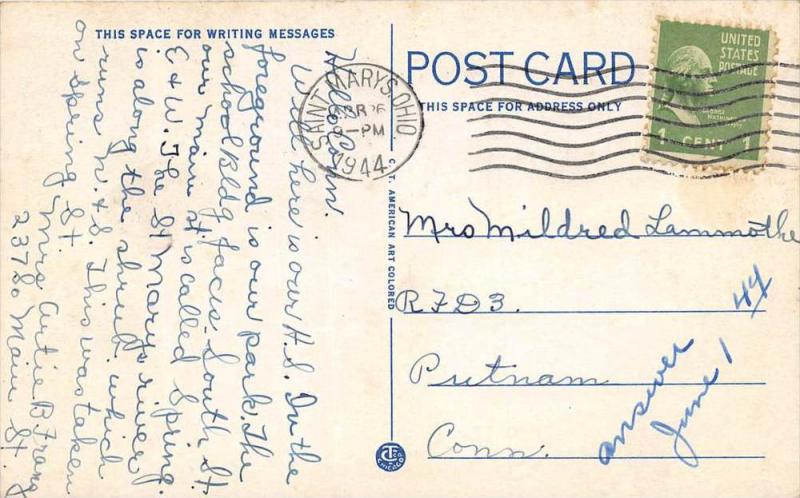 THIS SPACE FOR WRITING MESSAGES
Conn.
Well here is our H.S. In the
foreground is our park. The
school Bldg. faces South St.
our main st is called Spring.
E & W. The St Marys river
is along the shrub. which
runs N. & S. This was taken
on Spring St.
Mrs Artie B.
237 So Main St.
POST CARD
THIS SPACE FOR ADDRESS ONLY
SAINT MARYS, OHIO
9-PM
1944
UNITED
STATES
POSTAGE
1 CENT 1
C.T. AMERICAN ART COLORED
Mrs Mildred Lammothe
R F D 3.
Putnam
Conn.
answer
June 1
44
CHICAGO